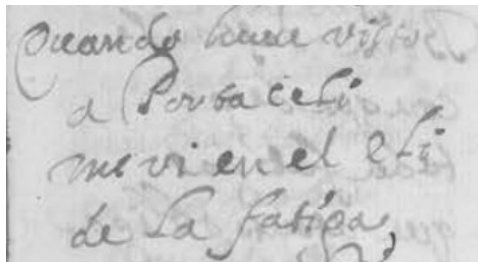 Quando huue visto
a Portaceli
me vi en el Eli
de la fatiga,